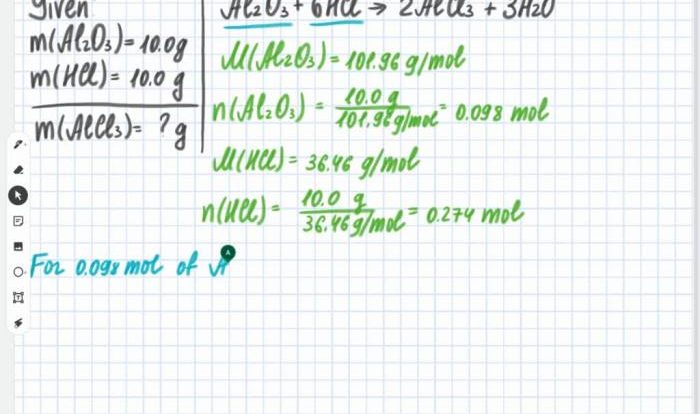 Given
m(Al₂O₃)= 10.0g
m(HCl)= 10.0 g
m(AlCl₃)= ? g
Al₂O₃ + 6HCl → 2AlCl₃ + 3H₂O
M(Al₂O₃)= 101.96 g/mol
n(Al₂O₃) = 10.0 g / 101.96 g/mol = 0.098 mol
M(HCl) = 36.46 g/mol
n(HCl) = 10.0 g / 36.46 g/mol = 0.274 mol
For 0.098 mol of A